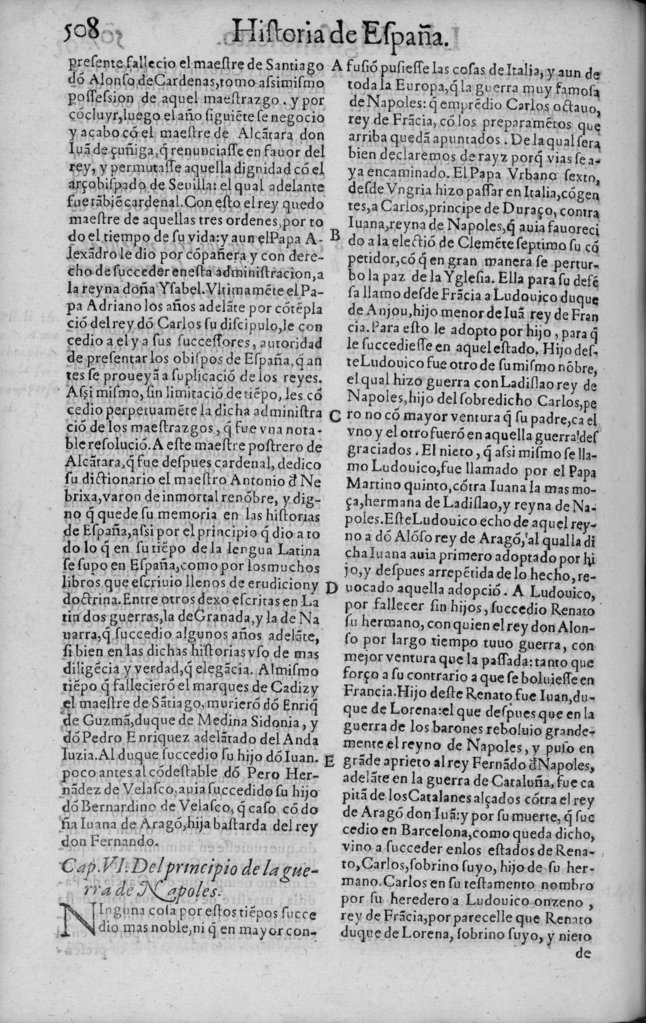 508 Historia de España.
presente fallecio el maestre de Santiago
dõ Alonso de Cardenas, tomo assimismo
possession de aquel maestrazgo. y por
cõcluyr, luego el año siguiẽte se negocio
y acabo cõ el maestre de Alcãtara don
Iuã de çuñiga, q̃ renunciasse en fauor del
rey, y permutasse aquella dignidad cõ el
arçobispado de Seuilla: el qual adelante
fue tãbiẽ cardenal. Con esto el rey quedo
maestre de aquellas tres ordenes, por to
do el tiempo de su vida: y aun el Papa A-
lexãdro le dio por cõpañera y con dere-
cho de succeder en esta administracion, a
la reyna doña Ysabel. Vltimamẽte el Pa-
pa Adriano los años adelãte por cõtẽpla
ciõ del rey dõ Carlos su discipulo, le con
cedio a el y a sus successores, autoridad
de presentar los obispos de España, q̃ an
tes se proueyã a suplicaciõ de los reyes.
Assi mismo, sin limitaciõ de tiẽpo, les cõ
cedio perpetuamẽte la dicha administra
ciõ de los maestrazgos, q̃ fue vna nota-
ble resoluciõ. A este maestre postrero de
Alcãtara, q̃ fue despues cardenal, dedico
su dictionario el maestro Antonio đ Ne
brixa, varon de inmortal renõbre, y dig-
no q̃ quede su memoria en las historias
de España, assi por el principio q̃ dio a to
do lo q̃ en su tiẽpo de la lengua Latina
se supo en España, como por los muchos
libros que escriuio llenos de erudicion y
doctrina. Entre otros dexo escritas en La
tin dos guerras, la de Granada, y la de Na
uarra, q̃ succedio algunos años adelãte,
si bien en las dichas historias vso de mas
diligẽcia y verdad, q̃ elegãcia. Al mismo
tiẽpo q̃ fallecierõ el marques de Cadiz y
el maestre de Sãtiago, murierõ dõ Enriq̃
de Guzmã, duque de Medina Sidonia, y
dõ Pedro Enriquez adelãtado del Anda
luzia. Al duque succedio su hijo dõ Iuan.
poco antes al cõdestable dõ Pero Her-
nãdez de Velasco, auia succedido su hijo
dõ Bernardino de Velasco, q̃ caso cõ do
ña Iuana de Aragõ, hija bastarda del rey
don Fernando.
Cap. VI. Del principio de la gue-
rra de Napoles.
NInguna cosa por estos tiẽpos succe
dio mas noble, ni q̃ en mayor con-
A fusiõ pusiesse las cosas de Italia, y aun de
toda la Europa, q̃ la guerra muy famosa
de Napoles: q̃ emprẽdio Carlos octauo,
rey de Frãcia, cõ los preparamẽtos que
arriba quedã apuntados. De la qual sera
bien declaremos de rayz porq̃ vias se a-
ya encaminado. El Papa Vrbano sexto,
desde Vngria hizo passar en Italia, cõ gen
tes, a Carlos, principe de Duraço, contra
Iuana, reyna de Napoles, q̃ auia fauoreci
B do a la electiõ de Clemẽte septimo su cõ
petidor, cõ q̃ en gran manera se pertur-
bo la paz de la Yglesia. Ella para su defẽ
sa llamo desde Frãcia a Ludouico duque
de Anjou, hijo menor de Iuã rey de Fran
cia. Para esto le adopto por hijo, para q̃
le succediesse en aquel estado. Hijo des-
te Ludouico fue otro de su mismo nõbre,
el qual hizo guerra con Ladislao rey de
Napoles, hijo del sobredicho Carlos, pe
C ro no cõ mayor ventura q̃ su padre, ca el
vno y el otro fuerõ en aquella guerra des
graciados. El nieto, q̃ assi mismo se lla-
mo Ludouico, fue llamado por el Papa
Martino quinto, cõtra Iuana la mas mo-
ça, hermana de Ladislao, y reyna de Na-
poles. Este Ludouico echo de aquel rey-
no a dõ Alõso rey de Aragõ, al qual la di
cha Iuana auia primero adoptado por hi
jo, y despues arrepẽtida de lo hecho, re-
D uocado aquella adopciõ. A Ludouico,
por fallecer sin hijos, succedio Renato
su hermano, con quien el rey don Alon-
so por largo tiempo tuuo guerra, con
mejor ventura que la passada: tanto que
forço a su contrario a que se boluiesse en
Francia. Hijo deste Renato fue Iuan, du-
que de Lorena: el que despues que en la
guerra de los barones reboluio grande-
mente el reyno de Napoles, y puso en
E grãde aprieto al rey Fernãdo đ Napoles,
adelãte en la guerra de Cataluña, fue ca
pitã de los Catalanes alçados cõtra el rey
de Aragõ don Iuã: y por su muerte, q̃ suc
cedio en Barcelona, como queda dicho,
vino a succeder en los estados de Rena-
to, Carlos, sobrino suyo, hijo de su her-
mano. Carlos en su testamento nombro
por su heredero a Ludouico onzeno,
rey de Frãcia, por parecelle que Renato
duque de Lorena, sobrino suyo, y nieto
de